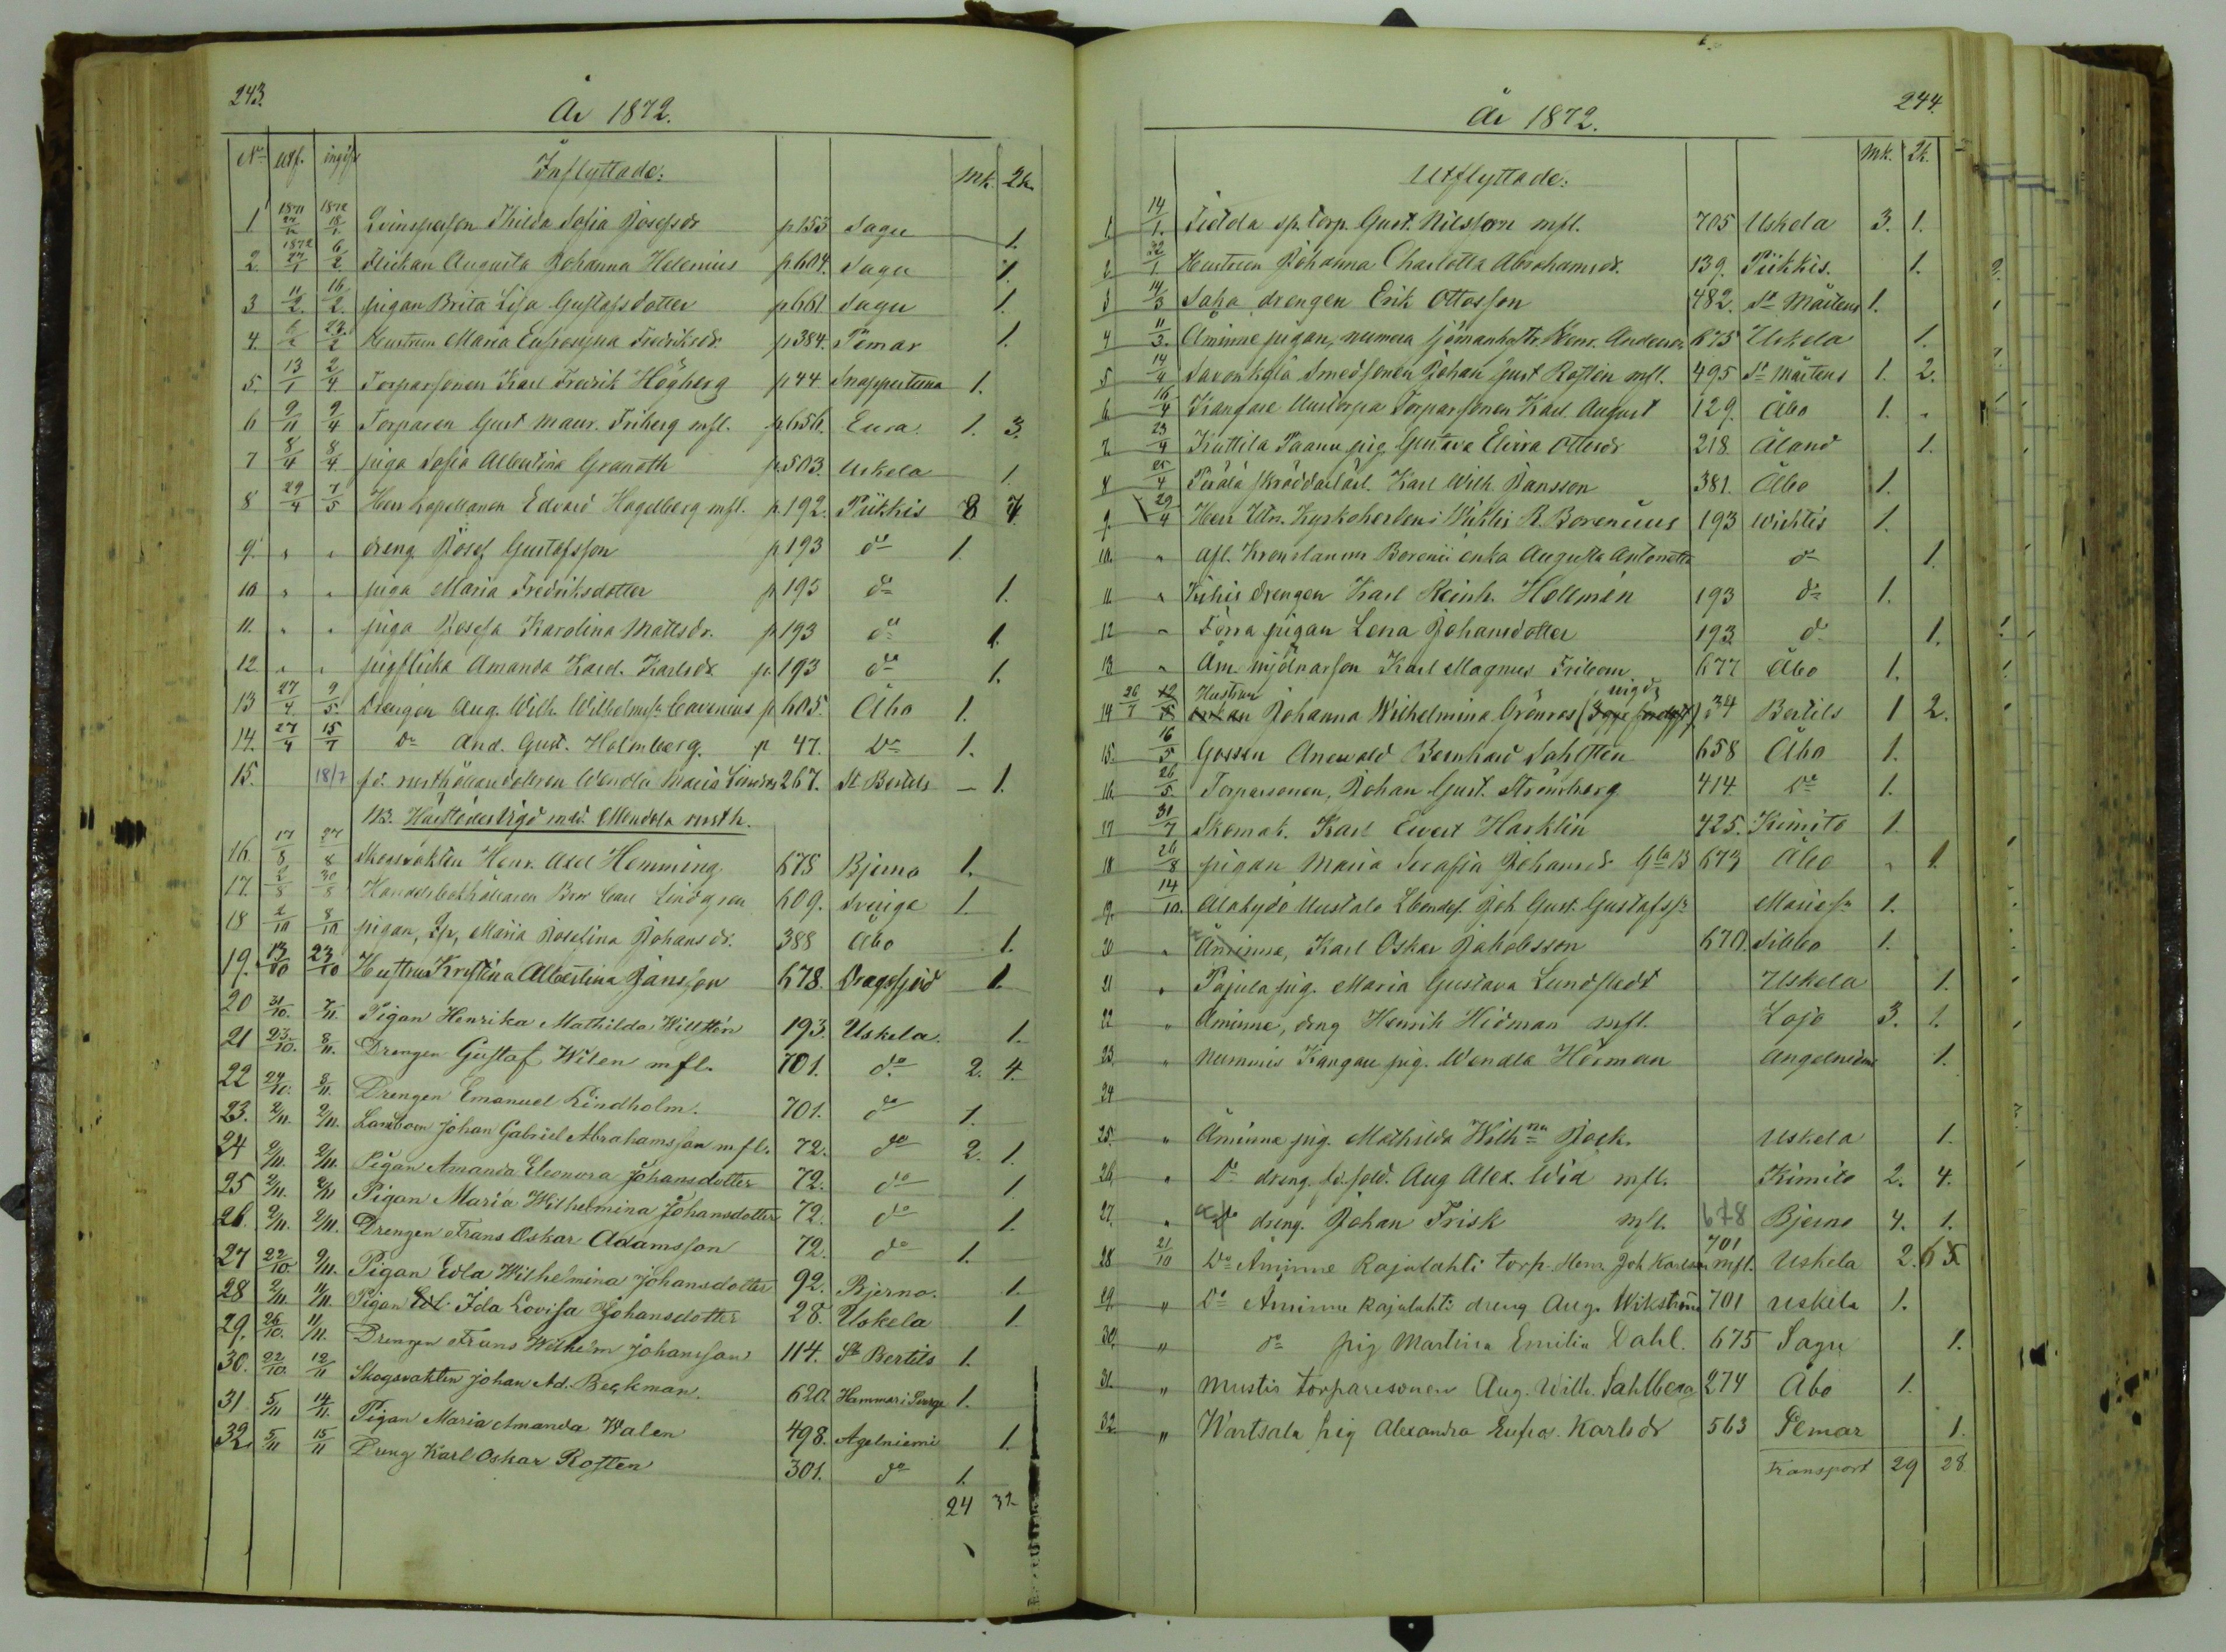 243.
År 1872.
No utf. ingifv
Inflyttade:
Mk. Qk.
1 1871 1872 18/1 Qvinsperson Hilda Sofia Josefsdr p 153 Sagu 1.
2 1872 27/1 6/2 Flickan Augusta Johanna Helenius p 604. Sagu 1.
3 11/2 16/2 pigan Brita Lisa Gustafsdotter p 661 Sagu 1.
4. 23/2 Hustrun Maria Eufrosyna Fredriksdr. p 384. Pemar 1.
5. 13/1 2/4 Torparsonen Karl Fredrik Högberg p 44 Snappertuna 1.
6 9/11 9/4 Torparen Gust Maur. Friberg mfl. p 656. Eura. 1. 3.
7 8/4 8/4 piga Sofia Albertina Granath p. 503. Uskela 1.
8 29/4 7/5 Herr Kapellanen Edvard Hagelberg mfl. p. 192. Piikkis 8 7
9. " " dreng Josef Gustafsson p 193 do 1.
10 " " piga Maria Fredriksdotter p 193 do 1.
11. " " piga Josefa Karolina Mattsdr. p 193 do 1.
12. " " pigflicka Amanda Karol. Karlsdr p. 193 do 1.
13 27/4 9/5 Drengen Aug. Wilh. Wilhelmss. Cavenius p 605. Åbo 1.
14. 27/4 15/7 Do And. Gust. Holmberg. p 47. Do 1.
15. 18/7 fd. rusthållaredotren Wendla Maria Lindros 267. St Bertils — 1.
NB. Härstädes vigd med Mendola rusth.
16. 17/8 27/8 Skogsvakten Henr. Axel Hemming 678 Bjerno 1.
17. 2/8 30/8 Handelsbokhållaren Carl Lindgren 609. Sverige 1.
18 2/10 8/10 pigan, Maria Roselina Johansdr. 388 Åbo 1.
19. 13/10 23/10 Hustrun Kristina Albertina Jansson 678. Dragsfjerd 1.
20 31/10. 7/11. Pigan Henrika Mathilda Willstén 193. Uskela. 1.
21 23/10. 8/11. Drengen Gustaf Wilen mfl. 701. do 2. 4.
22 24/10. 8/11. Drengen Emanuel Lindholm. 701. do 1.
23. 2/11. 2/11. Landboen Johan Gabriel Abrahamsson mfl. 72. do 2. 1.
24 2/11. 2/11. Pigan Amanda Eleonora Johansdotter 72. do 1.
25 2/11. 2/11 Pigan Maria Wilhelmina Johansdotter 72. do 1.
26. 2/11. 2/11. Drengen Frans Oskar Adamsson 72. do 1.
27 22/10. 9/11. Pigan Edla Wilhelmina Johansdotter 92. Bjerno. 1.
28 2/11. 11/11. Pigan Ida Lovisa Johansdotter 28. Uskela 1
29. 26/10. 11/11. Drengen Frans Wilhelm Johansson 114. St Bertils 1.
30. 22/10. 12/11 Skogsvakten Johan Ad. Beckman. 620. Hammari Sverge 1.
31 5/11 14/11. Pigan Maria Amanda Walen 498. Agelniemi 1.
32. 5/11 15/11 Dreng Karl Oskar Rosten 301. do 1.
24 32
244.
År 1872.
Utflyttade:
Mk. Qk.
1 14/1. sp. torp. Gust. Nilsson mfl. 705 Uskela 3. 1.
2 Hustrun Johanna Charlotta Abrahamsdr. 139. Piikkis. 1.
3 14/3 drengen Erik Ottosson 482. St Mårtens 1.
4 11/3. Åminne pigan, numera sjömanhustr. Henr. Andersdr 675 Uskela 1.
5 14/4 Savonkylä Smedsonen Johan Gust Rosten mfl. 495 St Mårtens 1. 2.
6 16/4 Kangare Uustorpa Torparsonen Karl August 129. Åbo 1.
7. 23/4 Kuttila Paanu pig. Gustava Elvira Ottosdr 218. Åland 1.
8 25/4 Perälä skräddarlärl. Karl Wilh. Jansson 381. Åbo 1.
9. 29/4 Herr Utn. Kyrkoherden i Wichtis R. Borenius 193 Wichtis 1.
10. " afl. Kronolänsm Borenii enka Augusta Antonetta do 1.
11 " drengen Karl Reinh. Hollmén 193 do 1.
12 " Förra pigan Lena Johansdotter 193 do 1.
13 " Åm. mjölnarson Karl Magnus Fribom 677 Åbo 1.
14 26/7 Hustrun Johanna Wilhelmina Grönros vigd 34 Bertils 1 2.
15. 16/5 Gossen Anewald Bernhard Sahlstén 658 Åbo 1.
16. 26/5 Torparsonen, Johan Gust. Strömberg 414. Do 1.
17 31/7 Skomak. Karl Evert Harklin 425. Kimito 1.
18 26/8 pigan Maria Serafia Johansdr 673 Åbo " 1.
19. 14/10. Alakydö Uustalo Joh Gust. Gustafss. 1.
20 " Åminne, Karl Oskar Jakobsson 670. Sibbo 1.
21 " Pajula pig. Maria Gustava Lundstedt Uskela 1.
22 " Åminne, dreng Henrik Hidman mfl. Lojo 3. 1.
23. " Nummis Kangare pig. Wendla Hörman Angelniemi 1.
24
25. " Åminne pig. Mathilda Wilhna Uskela 1.
26. " Do dreng. Aug Alex. Wid mfl. Kimito 2. 4.
27. " do dreng. Johan Frisk mfl. 678 Bjerno 4. 1.
28 21/10 Do Åminne Rajalahti torp. Henr. Joh Karlsson mfl. 701 Uskela 2. 6
29. " Do Åminne Rajalahti dreng Aug. Wikström 701 Uskela 1.
30. " do pig Martina Emilia Dahl. 675 Sagu 1.
31. " Mustis torparesonen Aug. Wilh. Sahlberg 274 Åbo 1.
32. " Wartsala pig Alexandra Eufro. Karlsdr 563 Pemar 1.
Transport 29 28.